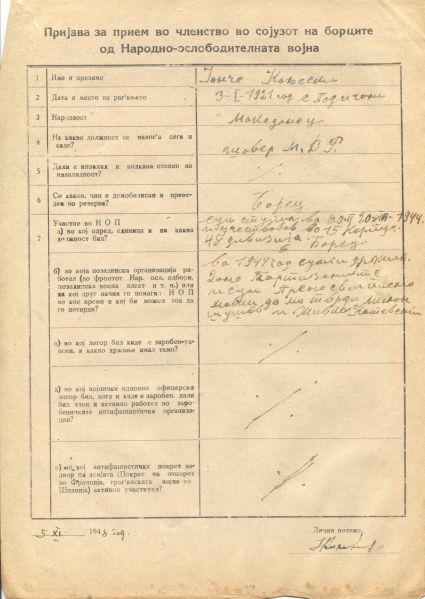 Пријава за прием во членство во сојузот на борците
од Народно-ослободителната војна
1 Име и презиме
2 Дата и место на раѓањето 3-I-1921 год с.
3 Народност Македонец
4 На каква должност се наоѓа сега и
каде? М.В.Р.
5 Дали е инвалид и колкава степен на
инвалидност? /.
6 Со каков чин е демобилизан и преве-
ден во резерва? Борец
7 Учество во Н О П
а) во кој одред, единица и на каква
должност бил?
во Н.О.П. 1944.
во 15 Корпус
48 дивизија. Борец
б) во која позадинска организација
работел (во фронтот Нар. осл. одбори,
позадинска воена власт и т. н.) или
на кој друг начин го помага НОП
во кое време и кој би можел тоа да
го потврди?
во 1944 год
и сум
да ми
и
ц) во кој логор бил каде е заробен-уа-
псен, и какво држање имал тамо? /.
д) во кој војнички односно офицерски
логор бил, кога и каде е заробен, дали
бил член и активно работел во заро-
беничките антифашистички организа-
ции? /.
е) во кој антифашистички покрет на-
двор од земјата (Покрет на отпорот
во Франција, граѓанската војна во
Шпанија) активно учествуел? /.
5 XI 1948 год.
Лична потпис,